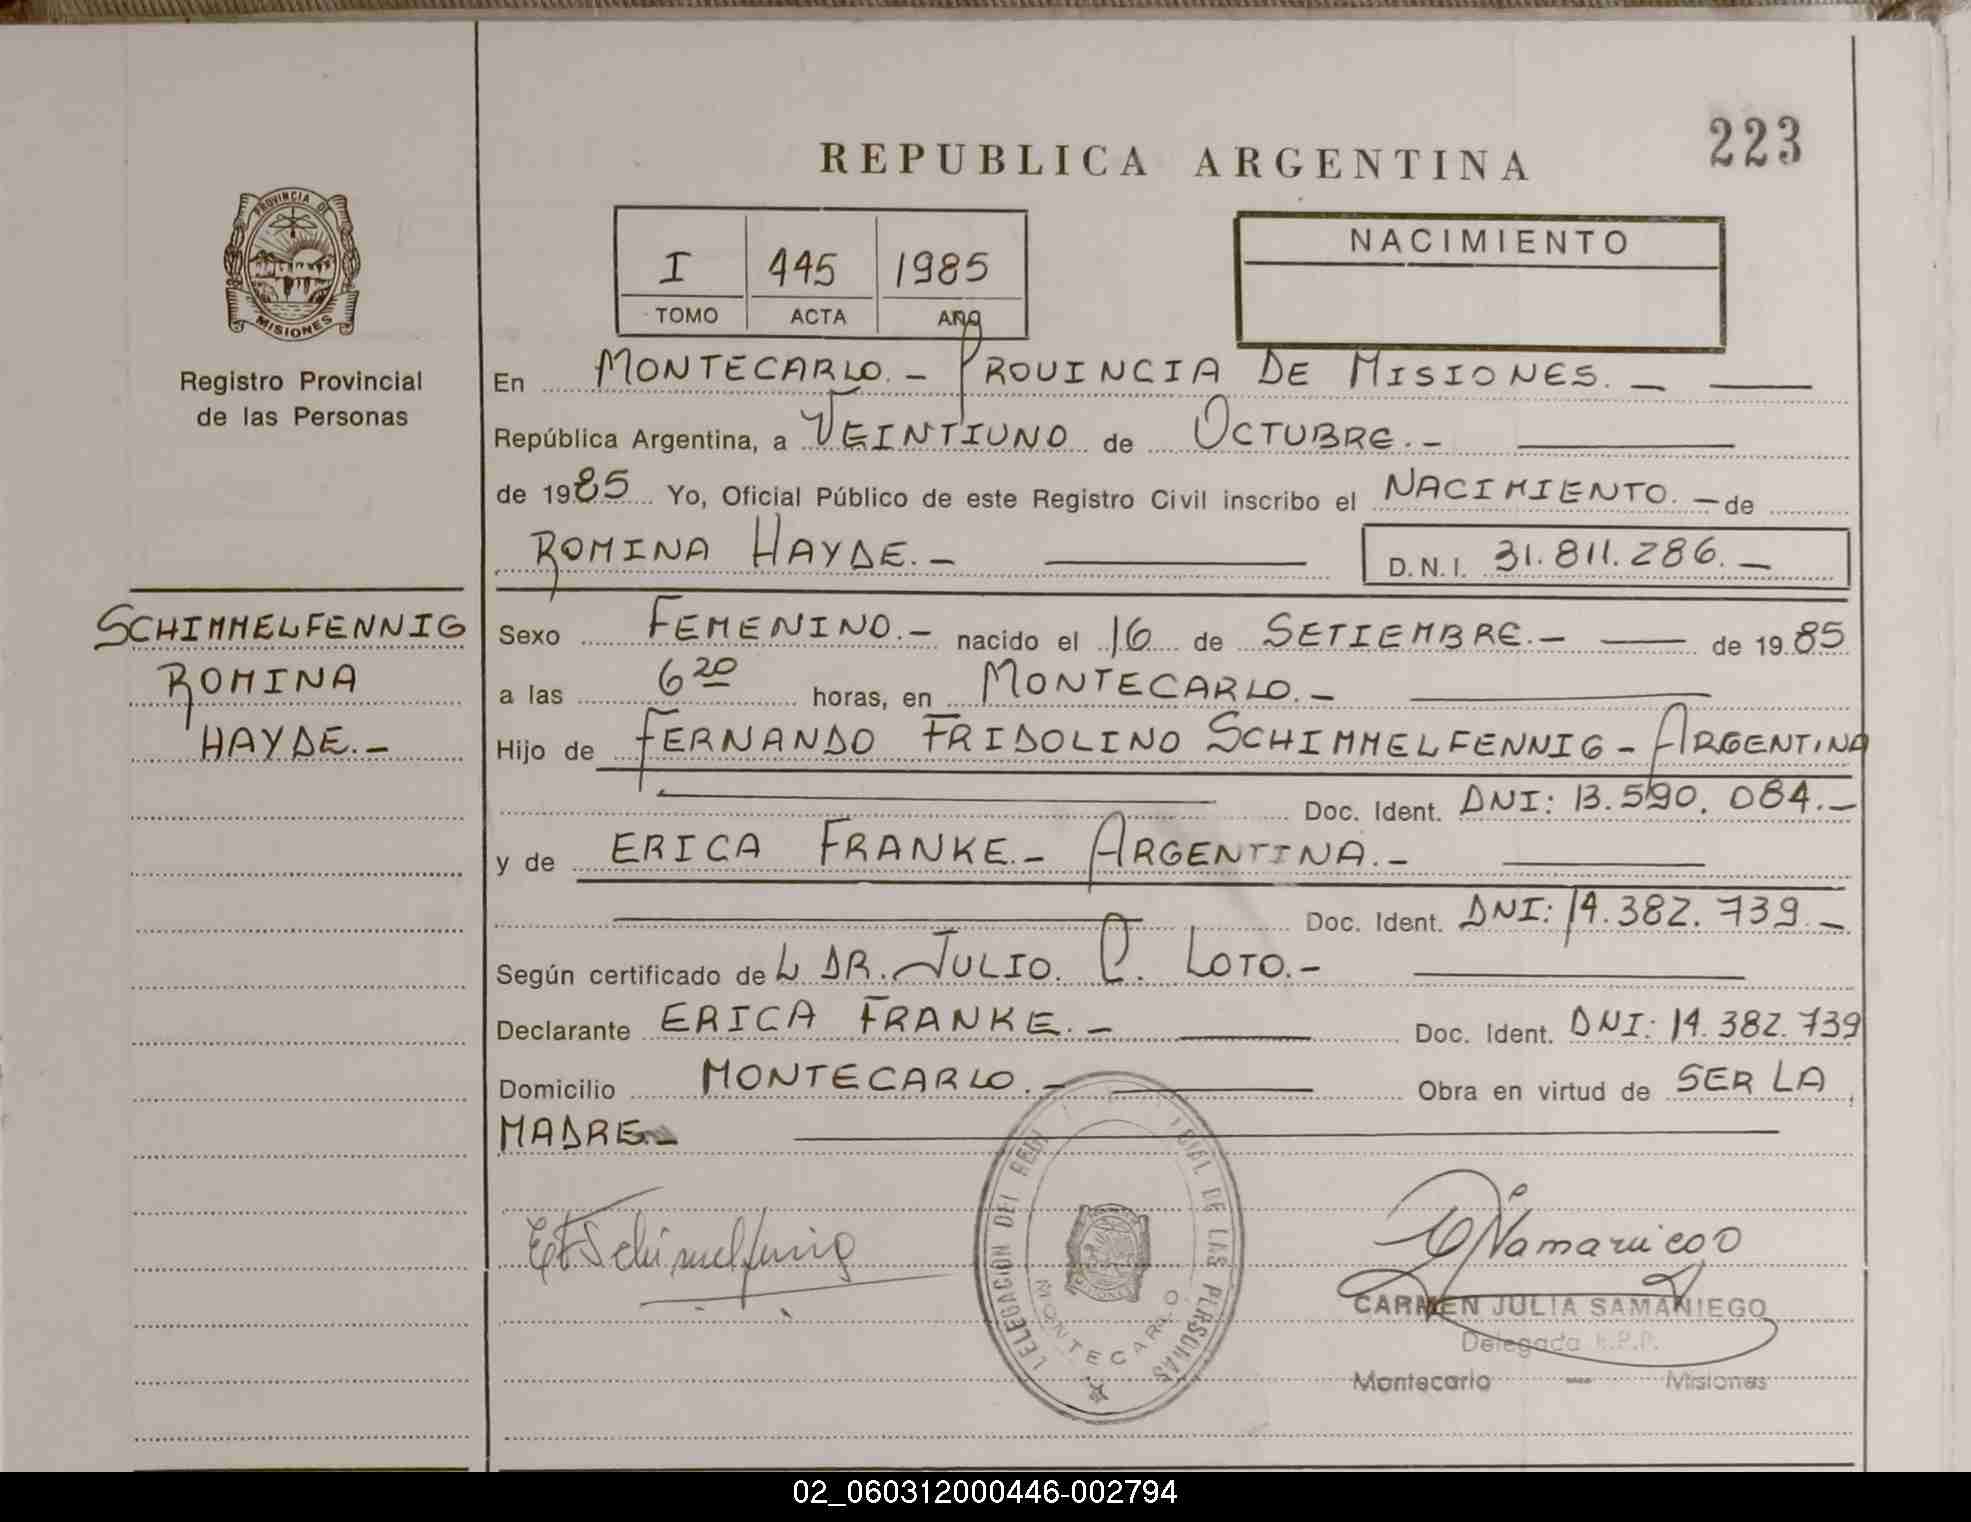 223
REPUBLICA ARGENTINA
PROVINCIA DE
MISIONES
Registro Provincial
de las Personas
I 445 1985
TOMO ACTA AÑO
NACIMIENTO
En MONTECARLO.- PROVINCIA DE MISIONES.-
República Argentina, a VEINTIUNO de OCTUBRE.-
de 1985 Yo, Oficial Público de este Registro Civil inscribo el NACIMIENTO.- de
ROMINA HAYDE.- D.N.I. 31.811.286.-
SCHIMMELFENNIG
ROMINA
HAYDE.-
Sexo FEMENINO.- nacido el 16 de SETIEMBRE.- de 1985
a las 6 20 horas, en MONTECARLO.-
Hijo de FERNANDO FRIDOLINO SCHIMMELFENNIG - ARGENTINA
Doc. Ident. DNI: 13.590.084.-
y de ERICA FRANKE.- ARGENTINA.-
Doc. Ident. DNI: 14.382.739.-
Según certificado de L DR. JULIO. C. LOTO.-
Declarante ERICA FRANKE.- Doc. Ident. DNI: 14.382.739
Domicilio MONTECARLO.- Obra en virtud de SER LA
MADRE.-
DELEGACION DEL REGI CIAL DE LAS PERSONAS
MONTECARLO
CARMEN JULIA SAMANIEGO
Delegada R.P.P.
Montecarlo - Misiones
02_060312000446-002794